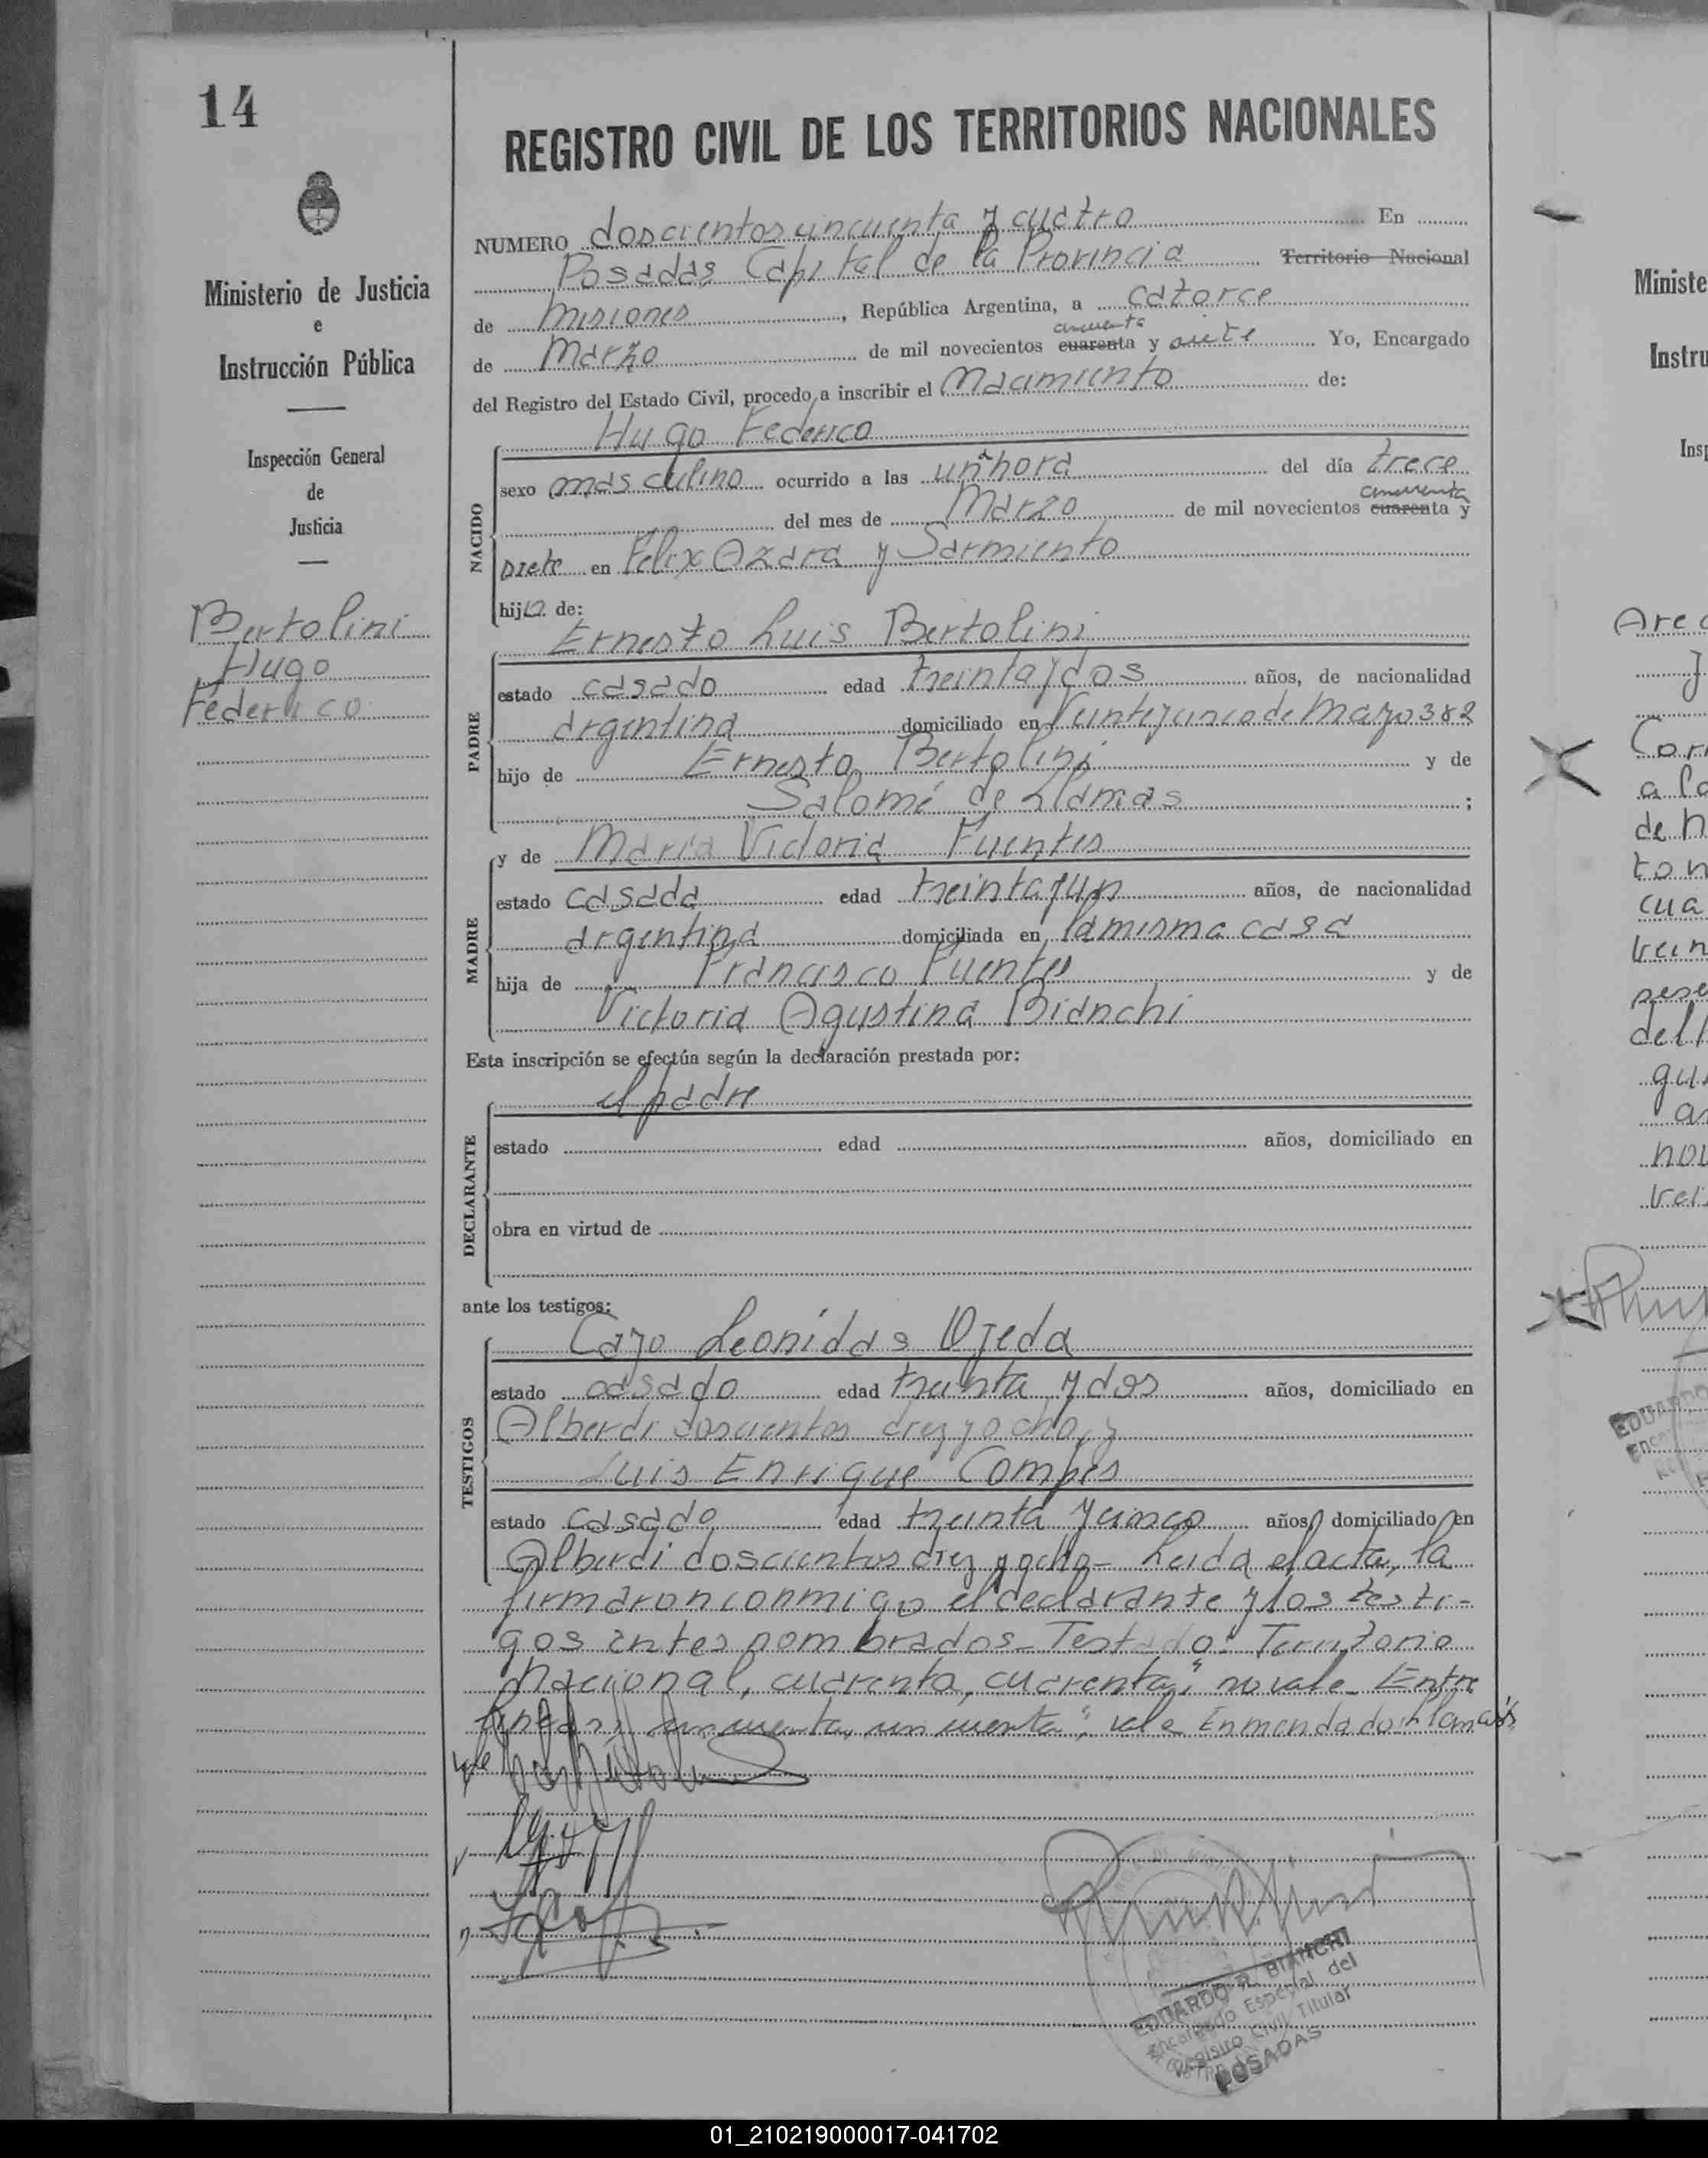 14
Ministerio de Justicia
e
Instrucción Pública
Inspección General
de
Justicia
Bertolini
Hugo
Federico
REGISTRO CIVIL DE LOS TERRITORIOS NACIONALES
NUMERO doscientos cincuenta y cuatro En
Posadas Capital de la Provincia Territorio Nacional
de Misiones, República Argentina, a catorce
cincuenta
de Marzo de mil novecientos cuarenta y siete Yo, Encargado
del Registro del Estado Civil, procedo a inscribir el Nacimiento de:
Hugo Federico
NACIDO
sexo masculino ocurrido a las una hora del día trece
cincuenta
del mes de Marzo de mil novecientos cuarenta y
siete en Félix Azara y Sarmiento
hijo de:
Ernesto Luis Bertolini
PADRE
estado casado edad treinta y dos años, de nacionalidad
argentina domiciliado en Veinticinco de Mayo 382
hijo de Ernesto Bertolini y de
Salomé de Llamas ;
y de María Victoria Fuentes
MADRE
estado casada edad treinta y un años, de nacionalidad
argentina domiciliada en la misma casa
hija de Francisco Fuentes y de
Victoria Agustina Bianchi
Esta inscripción se efectúa según la declaración prestada por:
el padre
DECLARANTE
estado edad años, domiciliado en
obra en virtud de
ante los testigos:
Cayo Leonidas Ojeda
TESTIGOS
estado casado edad treinta y dos años, domiciliado en
Alberdi doscientos diez y ocho, y
Luis Enrique Compes
estado casado edad treinta y cinco años, domiciliado en
Alberdi doscientos diez y ocho - Leida el acta, la
firmaron conmigo el declarante y los testi-
gos antes nombrados - Testado: Territorio
Nacional, cuarenta, cuarenta", no vale - Entre
lineas: cincuenta, cincuenta", vale Enmendado: Llamas
vale
EDUARDO R. BIANCHI
Encargado Especial del
Registro Civil Titular
POSADAS
Ministe
Instru
Insp
01_210219000017-041702